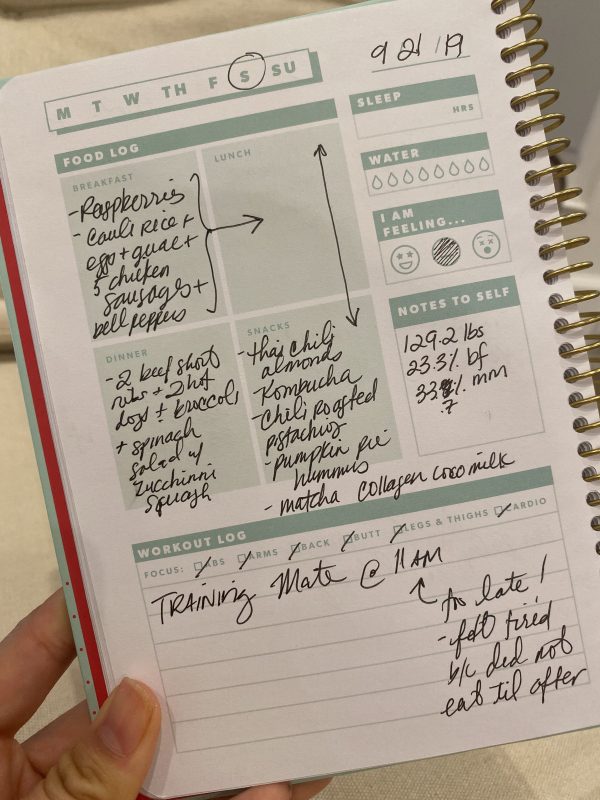 M T W TH F S SU
9 21 19
FOOD LOG
BREAKFAST
- Raspberries
- cauli rice +
egg + guac +
5 chicken
sausages +
bell peppers
LUNCH
DINNER
- 2 beef short
ribs + 2 hot
dogs + broccoli
+ spinach
salad w/
zucchinni
squash
SNACKS
- thai chili
almonds
- Kombucha
- Chili roasted
pistachios
- pumpkin pie
hummus
- matcha collagen coco milk
SLEEP
HRS
WATER
I AM
FEELING...
NOTES TO SELF
129.2 lbs
23.3% bf
33 % mm
.7
WORKOUT LOG
FOCUS: ABS ARMS BACK BUTT LEGS & THIGHS CARDIO
TRAINING Mate @ 11 AM
too late!
- felt tired
b/c did not
eat til after